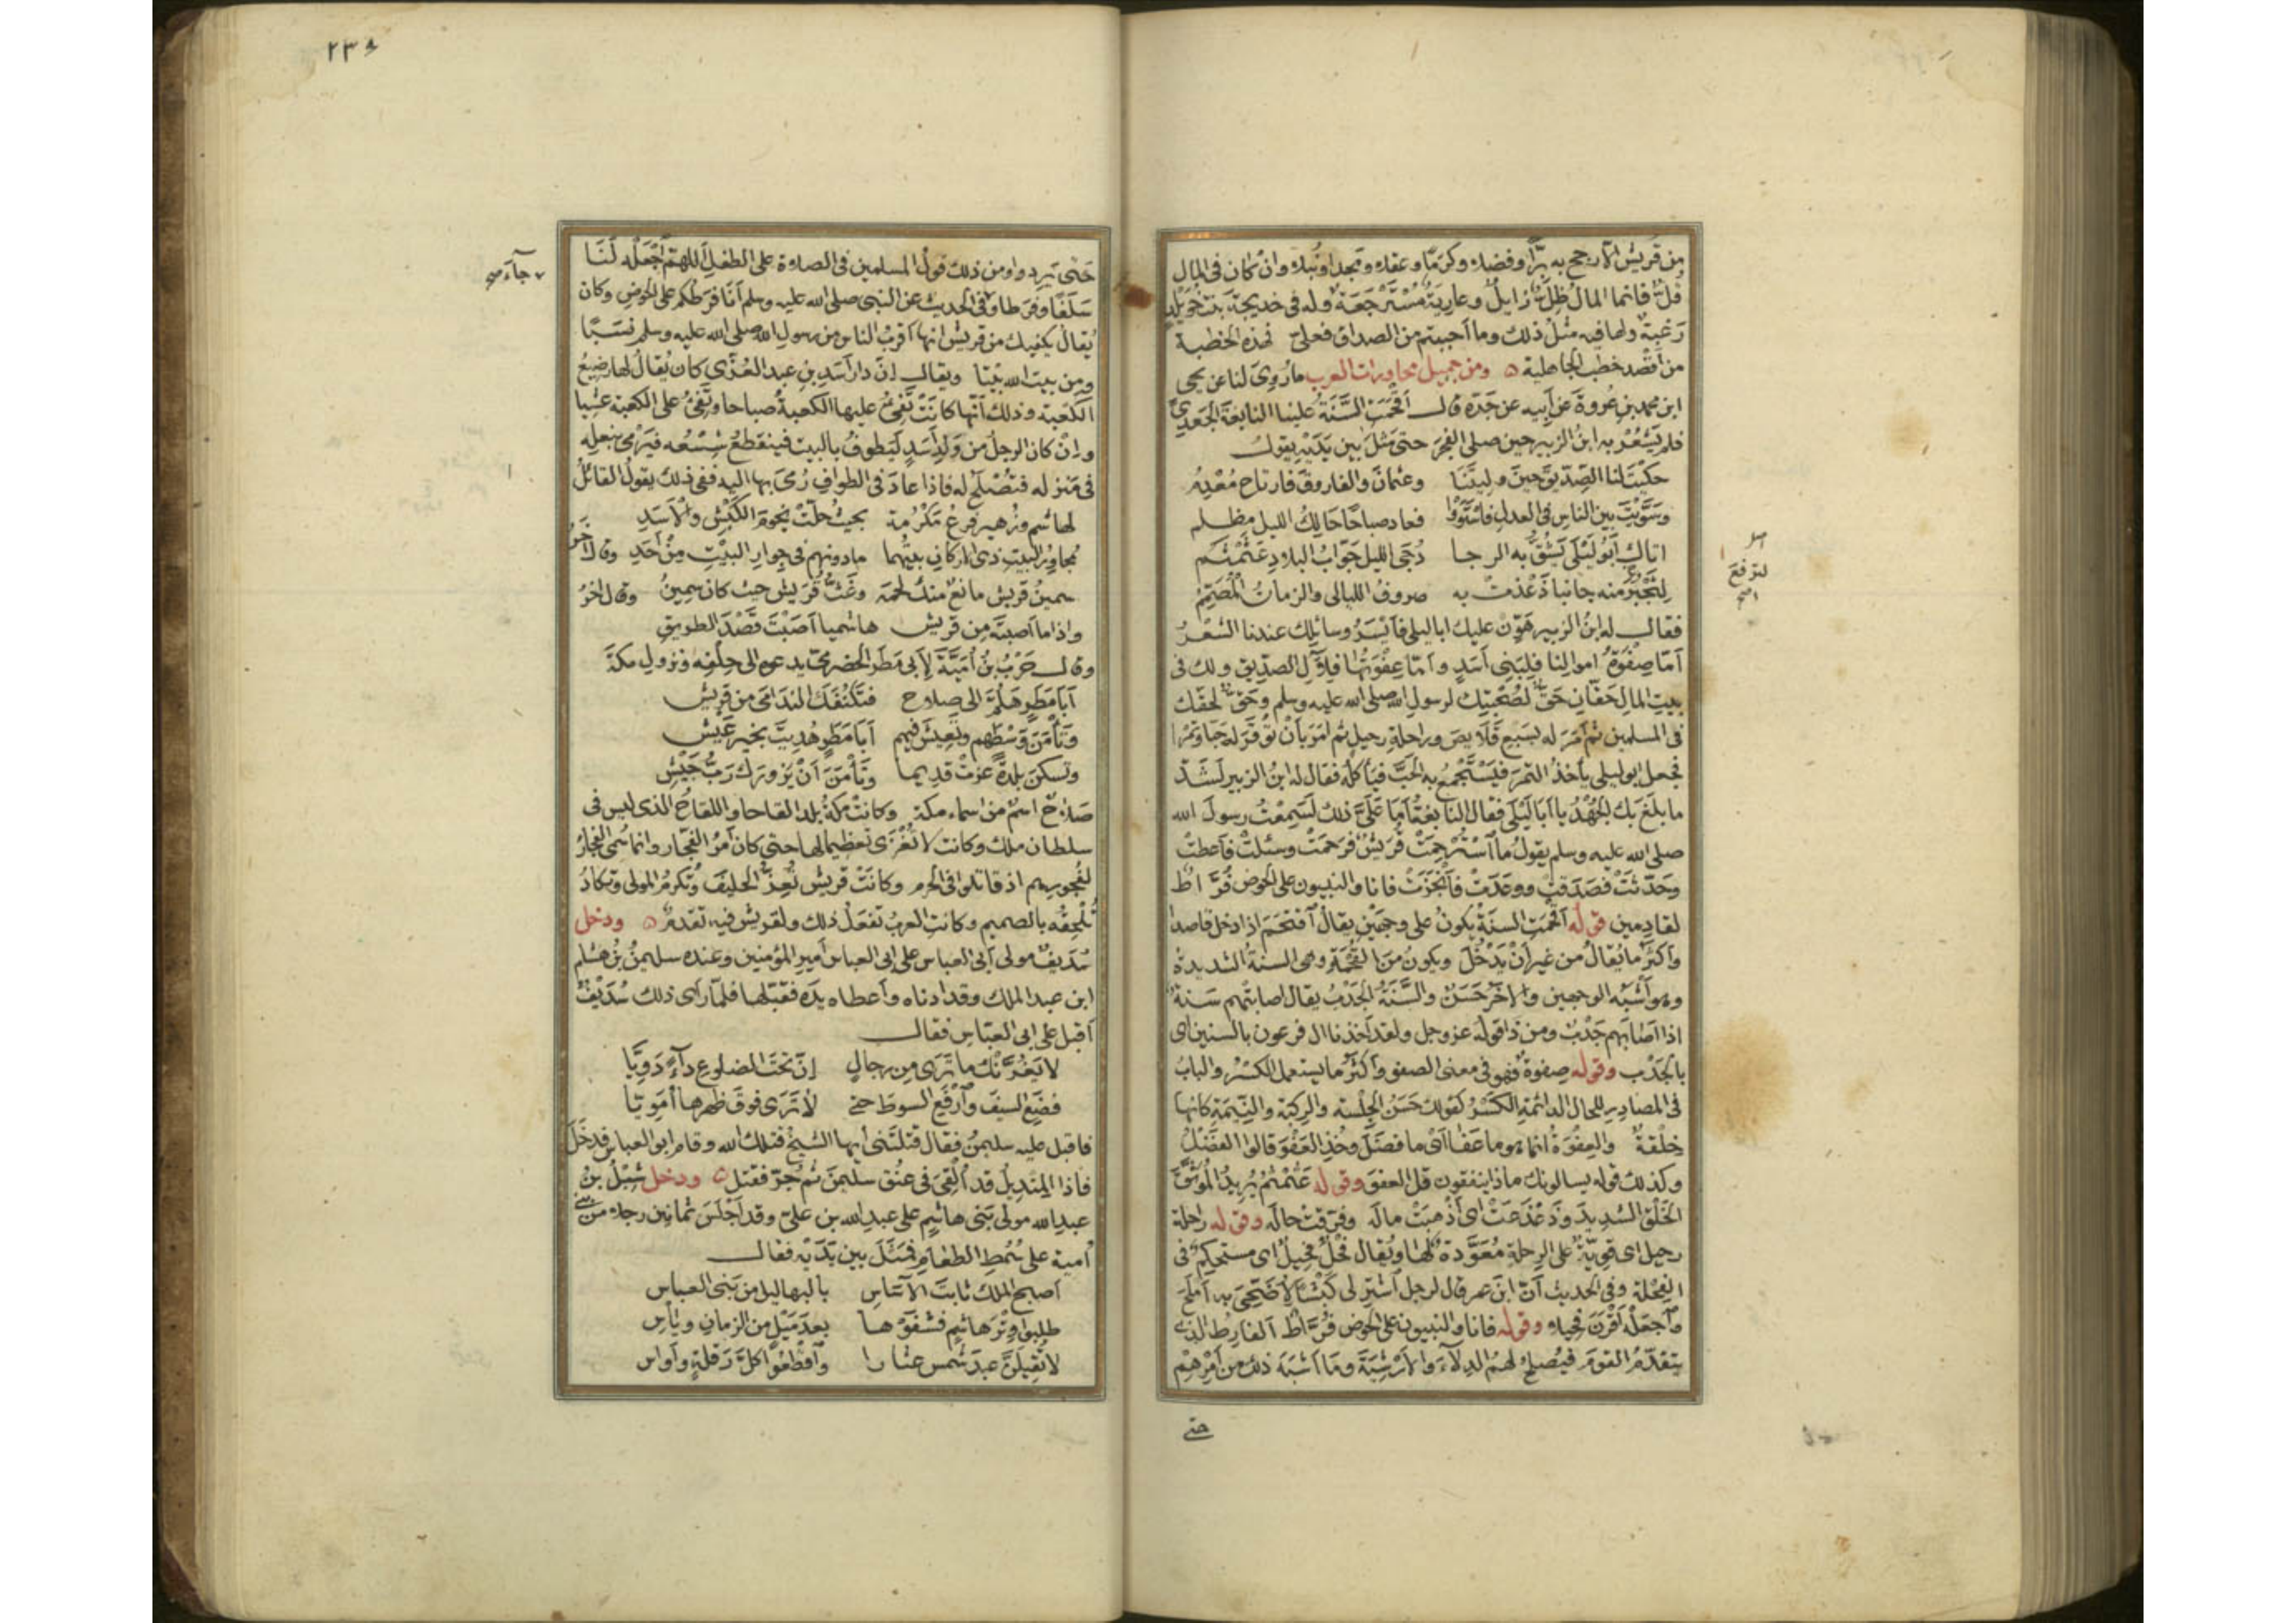 من قريش الا رجح به برّا وفضلا وكرمًا وعقلا ومجدا ونبلا وان كان في المال
قلّ فانما المال ظلّ زايل وعارية مسترجعة وله في خديجة بنت خويلد
رغبة ولها فيه مثل ذلك وما احببتم من الصداق فعليّ فهذه الخطبة
من أقصد خطب الجاهلية ومن جميل محاورات العرب ما روى لنا عن يحيى
ابن محمد بن عروة عن أبيه عن جده قال أقحمت السنة علينا النابغة الجعدي
فلم يشعر به ابن الزبير حين صلى الفجر حتى مثل بين يديه يقول
حكيت لنا الصديق حين وليتنا وعثمان والفاروق فارتاح معدم
وسويت بين الناس في العدل فاستووا فعاد صباحًا حالك الليل مظلم
اتاك أبو ليلى يشق به الرجا دجى الليل جواب البلاد عثمثم
لتجبر منه جانبا ذعذعت به صروف الليالي والزمان المصمم
فقال له ابن الزبير هون عليك ابا ليلى فأيسر وسائلك عندنا الشعر
أما صفوة اموالنا فلبني أسد وأما عفوتها فلآل الصديق ولك في
بيت المال حقان حق لصحبتك لرسول الله صلى الله عليه وسلم وحق لحقك
في المسلمين ثم أمر له بسبع قلايص وراحلة رحيل ثم أمر بأن توقر له حبا وتمرا
فجعل ابو ليلى يأخذ التمر فيستجمع به الحب فيأكله فقال له ابن الزبير لشد
ما بلغ بك الجهد يا أبا ليلى فقال النابغة أما على ذلك لسمعت رسول الله
صلى الله عليه وسلم يقول ما استرحمت قريش فرحمت وسئلت فأعطت
وحدثت فصدقت ووعدت فأنجزت فانا والنبيون على الحوض فراط
لقادمين قوله أقحمت السنة يكون على وجهين يقال اقتحم اذا دخل قاصدا
وأكثر ما يقال من غير أن يدخل ويكون من القحمة وهي السنة الشديدة
وهو أشبه الوجهين والآخر حسن والسنة الجدب يقال اصابتهم سنة
اذا اصابهم جدب ومن ذا قوله عز وجل ولقد أخذنا ال فرعون بالسنين اى
بالجدب وقوله صفوة فهو في معنى الصفو وأكثر ما يستعمل الكسر والباب
في المصادر للحال الدائمة الكسر كقولك حسن الجلسة والركبة والنيمة كانها
خلقة والعفوة انما هو ما عفا اى ما فضل وخذ العفو قالوا الفضل
وكذلك قوله يسالونك ماذا ينفقون قل العفو وقوله عثمثم يريد الموثق
الخلق الشديد وذعذعت اى أذهبت ماله وفرقت حاله وقوله راحلة
رحيل اى قوية على الرحلة معودة لها ويقال فحل فحيل اى مستحكم في
الفحلة وفي الحديث أن ابن عمر قال لرجل اشتر لى كبشا لأضحى به أملح
واجعله أقرن فحيلا وقوله فانا والنبيون على الحوض فراط الفارط الذي
يتقدم القوم فيصلح لهم الدلاء والأرشية وما اشبه ذلك من أمرهم
حتى
اصل
لترفع
٢٣٨
حتى يردوا ومن ذلك قول المسلمين في الصلاة على الطفل اللهم اجعله لنا
سلفًا وفرطا وفي الحديث عن النبي صلى الله عليه وسلم أنا فرطكم على الحوض وكان
يقال يكفيك من قريش انها أقرب الناس من رسول الله صلى الله عليه وسلم نسبًا
ومن بيت الله بيتا ويقال إن دار أسد بن عبد العزى كان يقال لها رضيع
الكعبة وذلك أنها كانت تفئ عليها الكعبة صباحا وتفئ على الكعبة عشيا
وإن كان الرجل من ولد أسد ليطوف بالبيت فينقطع شسعه فيرمى بنعله
في منزله فتصلح له فاذا عاد في الطواف رمى بها اليه ففي ذلك يقول القائل
لهاشم وزهير فرع مكرمة بحيث حلت نجوم الكبش والأسد
مجاور البيت ذي الاركان بيتهما مادونهم في جوار البيت من أحد وقال آخر
سمين قريش مانع منك لحمه وغث قريش حيث كان سمين وقال آخر
واذا ما أصبته من قريش هاشميا أصبت قصد الطريق
وقال حرب بن أمية لأبى مطر الحضرمي يدعوه الى حلفه ونزول مكة
أبا مطر هلم الى صلاح فتكنفك الندامى من قريش
وتأمن وسطهم وتعيش فيهم أبا مطر هديت بخير عيش
وتسكن بلدة عزت قديما وتأمن أن يزورك رب جيش
صلاح اسم من اسماء مكة وكانت مكة بلدا لقاحا واللقاح الذي ليس في
سلطان ملك وكانت لا تغزى تعظيما لها حتى كان أمر الفجار وانما سمى الفجار
لفجورهم اذ قاتلوا في الحرم وكانت قريش تعز الحليف وتكرم المولى وتكاد
تلحقه بالصميم وكانت العرب تفعل ذلك ولقريش فيه تقدم ودخل
سديف مولى أبى العباس على ابى العباس أمير المؤمنين وعنده سليمن بن هشام
ابن عبد الملك وقد ادناه وأعطاه يده فقبلها فلما رأى ذلك سديف
أقبل على ابى العباس فقال
لا يغرنك ما ترى من رجال إن تحت الضلوع داء دويا
فضع السيف وارفع السوط حتى لا ترى فوق ظهرها أمويا
فاقبل عليه سليمن فقال قتلتنى أيها الشيخ قتلك الله وقام ابو العباس فدخل
فاذا المنديل قد ألقى في عنق سليمن ثم جر فقتل ودخل شبل بن
عبد الله مولى بنى هاشم على عبد الله بن على وقد أجلس ثمانين رجلا من بني
أمية على سمط الطعام فمثل بين يديه فقال
أصبح الملك ثابت الآساس بالبهاليل من بني العباس
طلبوا وتر هاشم فشفوها بعد ميل من الزمان وياس
لا تقيلن عبد شمس عثارا واقطعوا كل رقلة وأواس